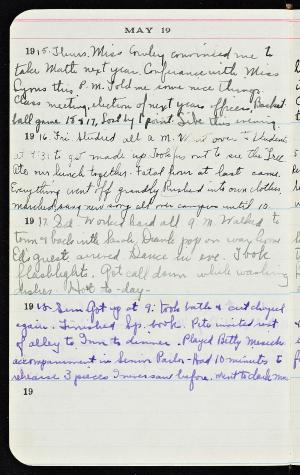 MAY 19
1915. Thurs. Miss Cowley convinced me to
take Math next year. Conference with Miss
this P.M. Told me some nice things.
Class meeting, election of next year's officers, Basket
ball game 15 & 17, lost by 1 point. this evening.
1916. Fri. Studied all a.m. Went over to Students
at 4:31 to get made up. Took us out to see the Tree
Ate our lunch together. Fatal hour at last came.
Everything went off grandly. Rushed into own clothes,
marched, sang new song all over campus until 10.
1917. Sat. Worked hard all a.m. Walked to
town & back with Sarah. Drank pop on way home
Ed's guest arrived. Dance in eve. Took
flashlight. Got call down while washing
dishes. Hot to-day-
1918. Sun. Got up at 9: took bath & cut chapel
again. Finished lg. book. Pete invited rest
of alley to Inn to dinner. Played Betty
accompaniment in Senior Parlor - Had 10 minutes to
rehearse 3 pieces I never saw before. Went to dark mu
19